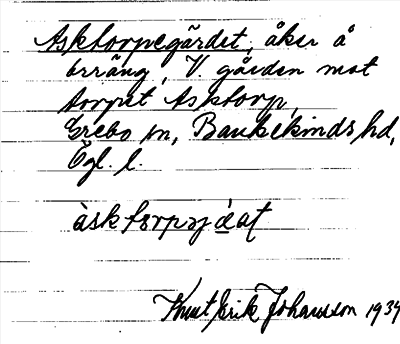 Asktorpegärdet, åker å
bräng, V. gården mot
torpet Asktorp,
Grebo sn, Bankekinds hd,
Ögl. l.
Knut Erik Johansson 1934